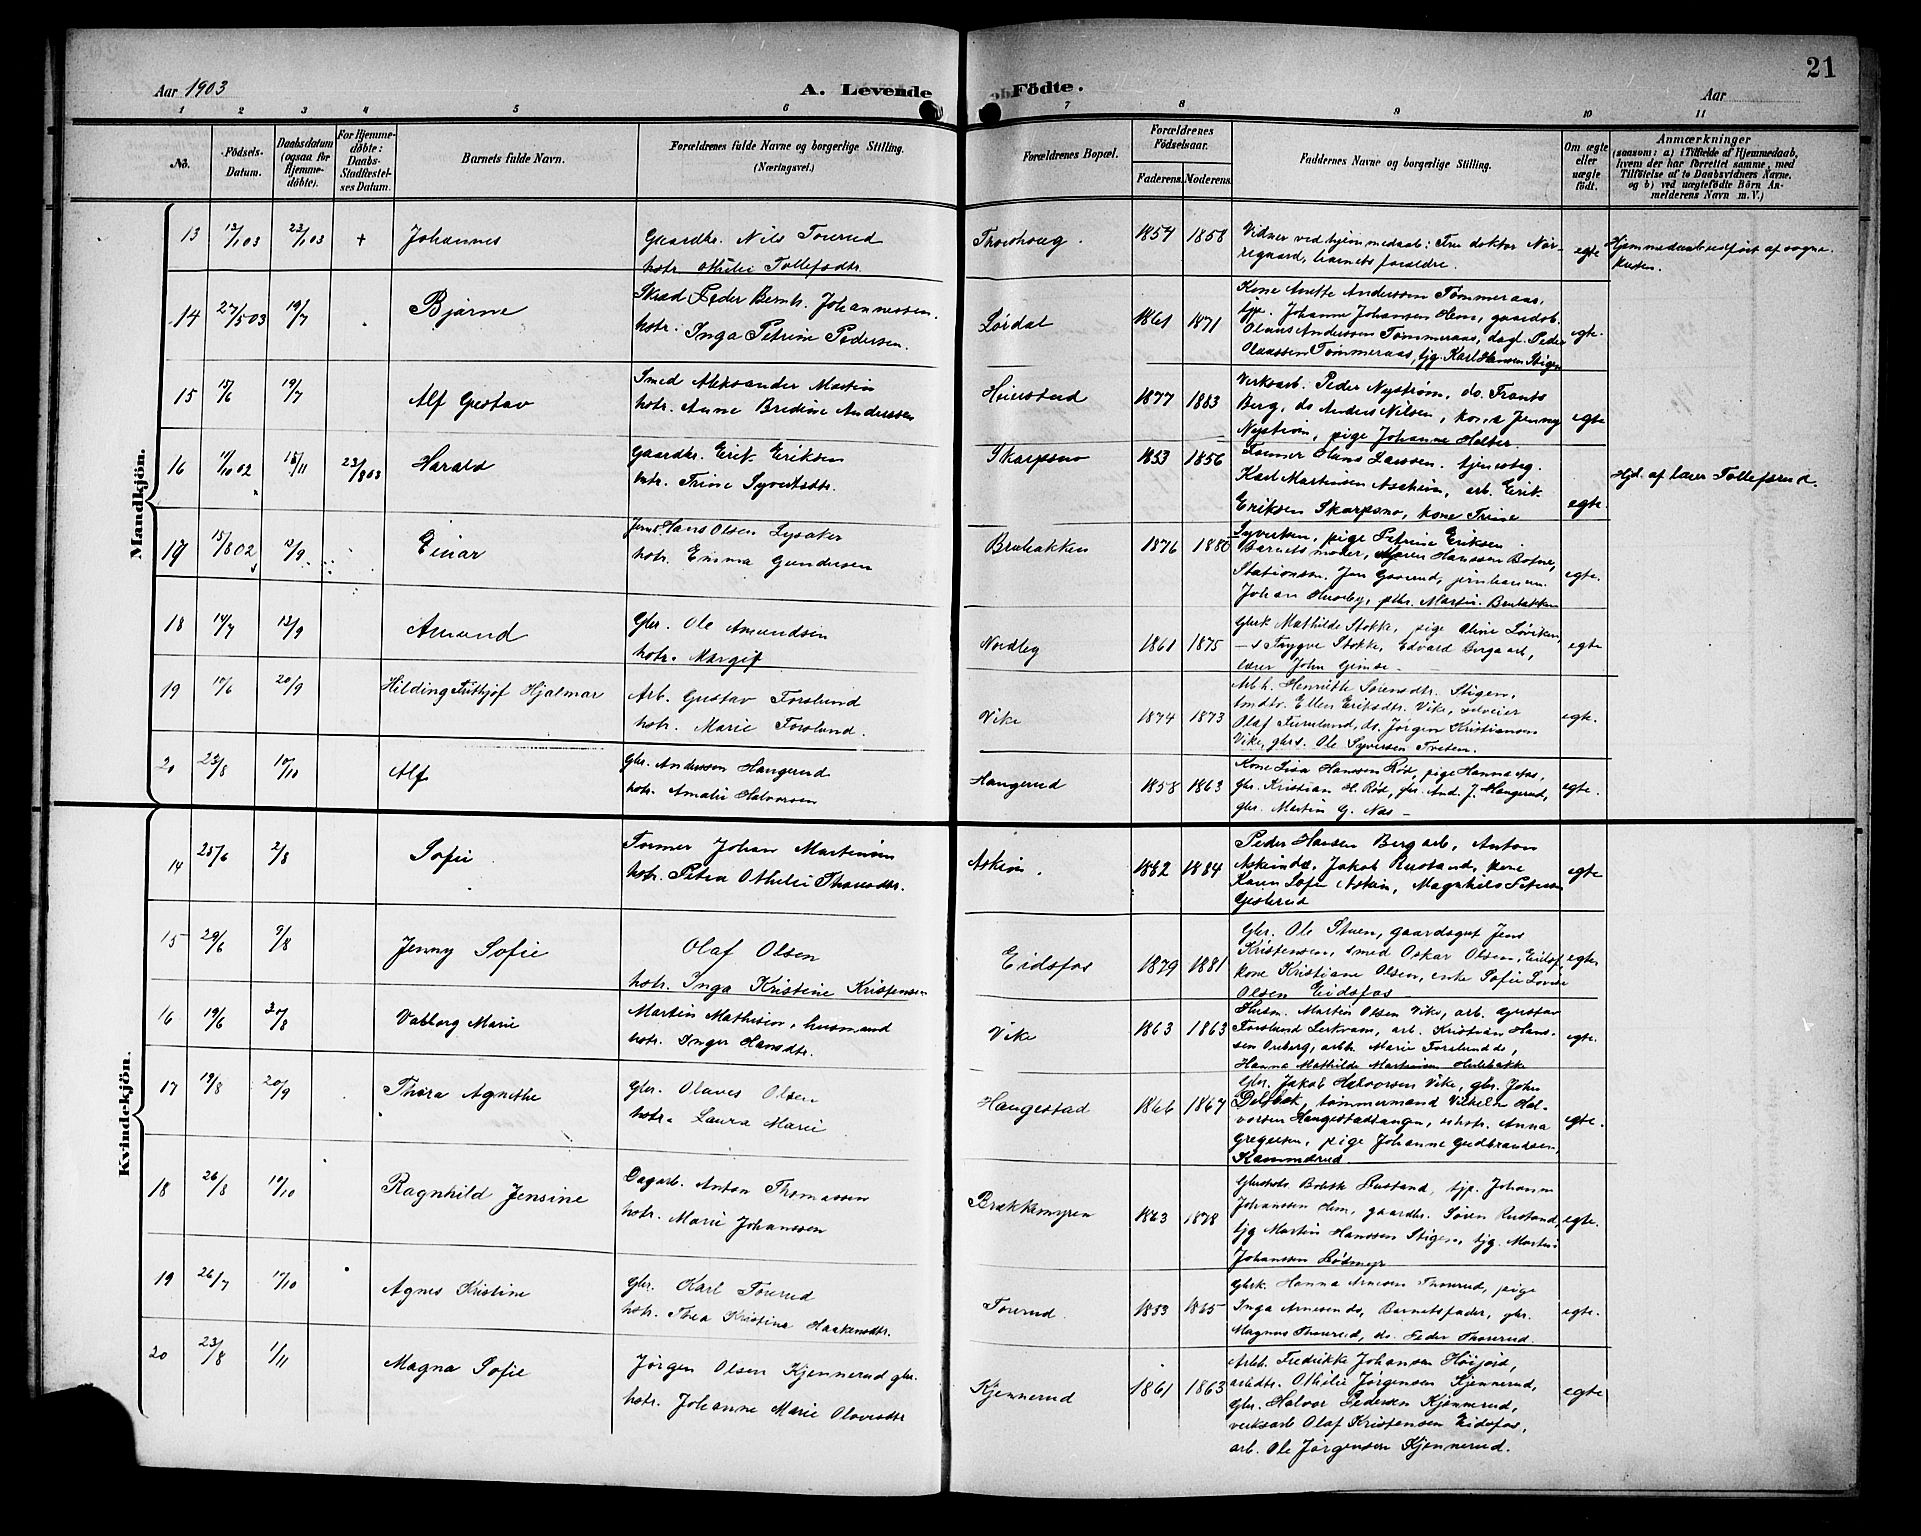 21
Aar 1903
A. Levende
Fødte.
Aar
1 2 3 4 5 6 7 8 9 10 11
No.
Fødsels-Datum.
Daabsdatum (ogsaa for Hjemme-døbte).
For Hjemme-døbte: Daabs-Stadfæstel-ses Datum.
Barnets fulde Navn.
Forældrenes fulde Navne og borgerlige Stilling.
(Næringsvei.)
Forældrenes Bopæl.
Forældrenes Fødselsaar.
Faderens. Moderens.
Faddernes Navne og borgerlige Stilling.
Om ægte eller uægte født.
Anmærkninger
(saasom: a) i Tilfælde af Hjemmedaab,
hvem der har forrettet samme, med
Tilføielse af to Daabsvidners Navne.
og b) ved uægtefødte Børn An-
melderens Navn m. V.)
Mandkjön.
13 12/1 03 22/1 03 + Johannes
Gaardbr. Nils Torerud
hstr. Othilie Tollefsdtr.
Thorshoug. 1854 1858
Vidner ved hjemmedaab: Fru doktor Nør-
regaard, barnets forældre.
egte
Hjemmedaab udført af sogne-
presten.
14 27/5 03 19/7 Bjarne
Peder Bernh. Johannessen.
hstr. Inga Petrine Pedersen.
Lørdal 1861 1871
Kone Anette Anderssen Tømmeraas,
tjp. Johanne Johansen Hem, gaardb.
Olaus Anderssen Tømmeraas, dagl. Peder
Olaussen Tømmeraas, tjg. Karl Hansen Stigen
egte.
15 15/6 19/7 Alf Gustav
Smed Aleksander Martin
hstr. Anne Bredine Anderssen
Høierstad 1877 1883
Verksarb. Peder Nystrøm, do. Frants
Berg, do. Anders Nilsen, kone Jenny
Nystrøm, pige Johanne Holter.
egte
16 11/10 02 15/11 23/8 03 Harald
Gaardbr. Erik Eriksen
hstr. Trine Syvertsdtr.
Skarpsno 1853 1856
Former Hans Larssen. tjenestg.
Karl Martinsen Aasheim, arb. Erik
Eriksen Skarpsno, kone Trine
Syvertsen, pige Petrine Eriksen
egte
Hjd. af lærer Tollefsrud.
17 15/8 02 13/9 Einar
Hans Olsen Lysaker
hstr. Emma Gundersen
Brubakken 1876 1880
Barnets moder, Maren Hanssen Botne,
Stationsm. Jon Gaverud,
Johan Huseby, pthr. Martin Brubakken
egte.
18 14/7 13/9 Amund
Gbr. Ole Amundsen
hstr. Margit
Nordby 1861 1875
Gbrk Mathilde Stokke, pige Oline Løviken,
Trygve Stokke, Edvard Berg aarb,
lærer John Gimse
egte
19 10/6 20/9 Hilding Frithjof Hjalmar
Arb. Gustav Forslund
hstr. Marie Forslund.
Vike 1874 1873
Arbh. Henriette Sørensdtr. Stigen,
Ellen Eriksdtr. Vike, selveier
Olaf Furulund, do. Jørgen Kristiansen
Vike, gbrs. Ole Syversen Tveten.
egte.
20 23/8 10/10 Alf
Gbr. Anderssen Hangerud
hstr. Amalie Halvorsen
Hangerud 1858 1863
Kone Lisa Hanssen Rød, pige Hanna Aas,
gbr. Kristian H. Rød, gbr. And. J. Hangerud,
gbr. Martin G. Nas
egte.
Kvindekjön.
14 25/6 2/8 Sofie
Former Johan Martinsen
hstr. Petra Othilie Thorsdtr.
Askim. 1882 1884
Peder Hansen Berg arb, Anton
Askim do, Jakob Rustand, kone
Karen Sofie Askim, Magnhild Petersen
Gisterud
egte
15 29/6 9/8 Jenny Sofie
Olaf Olsen
hstr. Inga Kristine Kristensen
Eidsfos 1879 1881
Gbr. Ole Stuen, gaardsgut Jens
Kristensen, smed Oskar Olsen, Eidsf.
kone Kristiane Olsen, enke Sofie Lovise
Olsen Eidsfos
egte
16 19/6 30/8 Valborg Marie
Martin Mathisen, husmand
hstr. Inger Hansdtr.
Vike 1863 1863
Husm. Martin Olsen Vike, arb. Gustav
Forslund Lerkvam, arb. Kristian Hans-
sen Oreberg, arbh Marie Forslund do,
Hanna Mathilde Martinsen Hulebakke
egte.
17 19/8 20/9 Thora Agnethe
Gbr. Olaves Olsen
hstr. Laura Marie
Haugestad 1866 1867
Gbr. Jakob Halvorsen Vike, gbr. John
Delebæk, tømmermand Vilhelm Hal-
vorsen Haugestadtangen, Anna
Gregersen, pige Johanne Gudbrandsen,
Kammerud
egte.
18 26/8 10/10 Ragnhild Jensine
Dagarb. Anton Thomassen
hstr. Marie Johanssen
Brækkemyren 1863 1878
Rustand, tjp. Johanne
Johanssen Hem, gaardbr. Søren Rustand,
tjg Martin Hanssen Stigen, tjg. Martin
Johanssen Løsmyr
egte.
19 26/7 11/10 Agnes Kristine
Gbr. Karl Torerud
hstr. Thea Kristina Haakensdtr.
Torerud. 1853 1865
Gbrk. Hanna Arnesen Thorerud, pige
Inga Arnesen do, Barnets fader, gbr.
Magnus Thorerud, do. Peder Thorerud.
egte.
20 23/8 1/11 Magna Sofie
Jørgen Olsen Kjennerud gbr.
hstr. Johanne Marie Olavesdtr
Kjennerud 1861 1863
Arbh. Fredrikke Johansen Høijord,
arbdtr. Othilie Jørgensen Kjennerud,
Gbr. Halvor Pedersen Kjennerud,
verksarb Olaf Kristensen Eidsfos,
arb. Ole Jørgensen Kjennerud.
egte